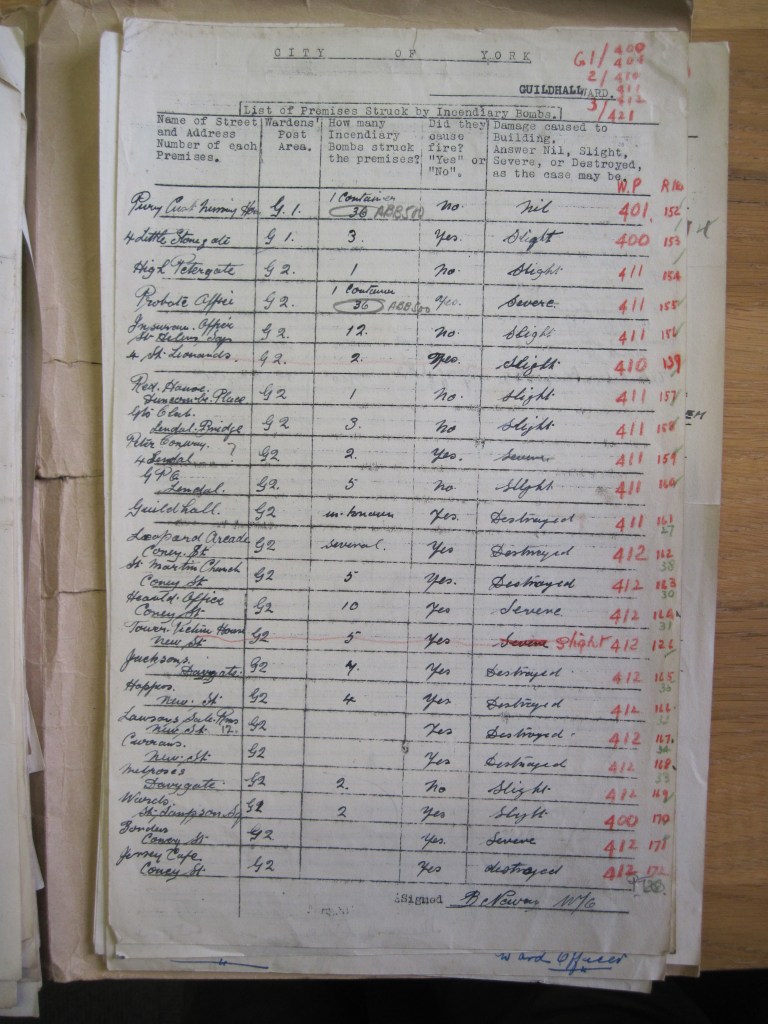 CITY OF YORK
G1/400
401
2/410
411
3/412
421
GUILDHALL WARD.
List of Premises Struck by Incendiary Bombs.
Name of Street and Address Number of each Premises. Wardens' Post Area. How many Incendiary Bombs struck the premises? Did they cause fire? "Yes" or "No". Damage caused to Building. Answer Nil, Slight, Severe, or Destroyed, as the case may be.
W.P R No
1 Container
Purey Cust Nursing Hom G.1. 36 No. Nil 401. 152
4 Little Stonegate G 1. 3. Yes. Slight 400 153
High Petergate G 2. 1 No. Slight 411 154
1 Container
Probate Office G2. 36 Yes. Severe. 411 155
Insurance Office
St Helens Sqs G2. 12. No. Slight 411 156
4 St Leonards. G2. 2. Yes. Slight 410 139
Red House.
Duncombe Place G2 1 No. Slight 411 157
Club.
Lendal Bridge G2 3. No Slight. 411 158
Peter
4 Lendal G2 2. Yes. Severe 411 159
G P O
Lendal. G2. 5 No. Slight 411 160
Guildhall. G2 unknown Yes. Destroyed 411 161
27
Leopard Arcade
Coney. St G2 Several. Yes Destroyed 412 162
38
St Martin Church
Coney St G2 5 Yes. Destroyed 412 163
30
Herald Office
Coney St G2 10 Yes Severe 412 164
31
House
New St G2 5 Yes Severe Slight 412 126
Jacksons.
Davygate. G2 7. Yes Destroyed 412 165
Hoppers.
New. St G2 4 Yes Destroyed 412 166
Lawsons Sale Rms
New St 12. G2 Yes Destroyed 412 167.
Currans.
New. St G2 Yes Destroyed 412 168
33
Melroses
Davygate. G2 2. No Slight. 412 169
Wards.
St. Sampson Sq G2 2 Yes Slight 400 170
Borders
Coney St G2 Yes. Severe 412 171
Jersey Cafe
Coney St. G2 Yes destroyed 412 172
Signed
Ward Officer